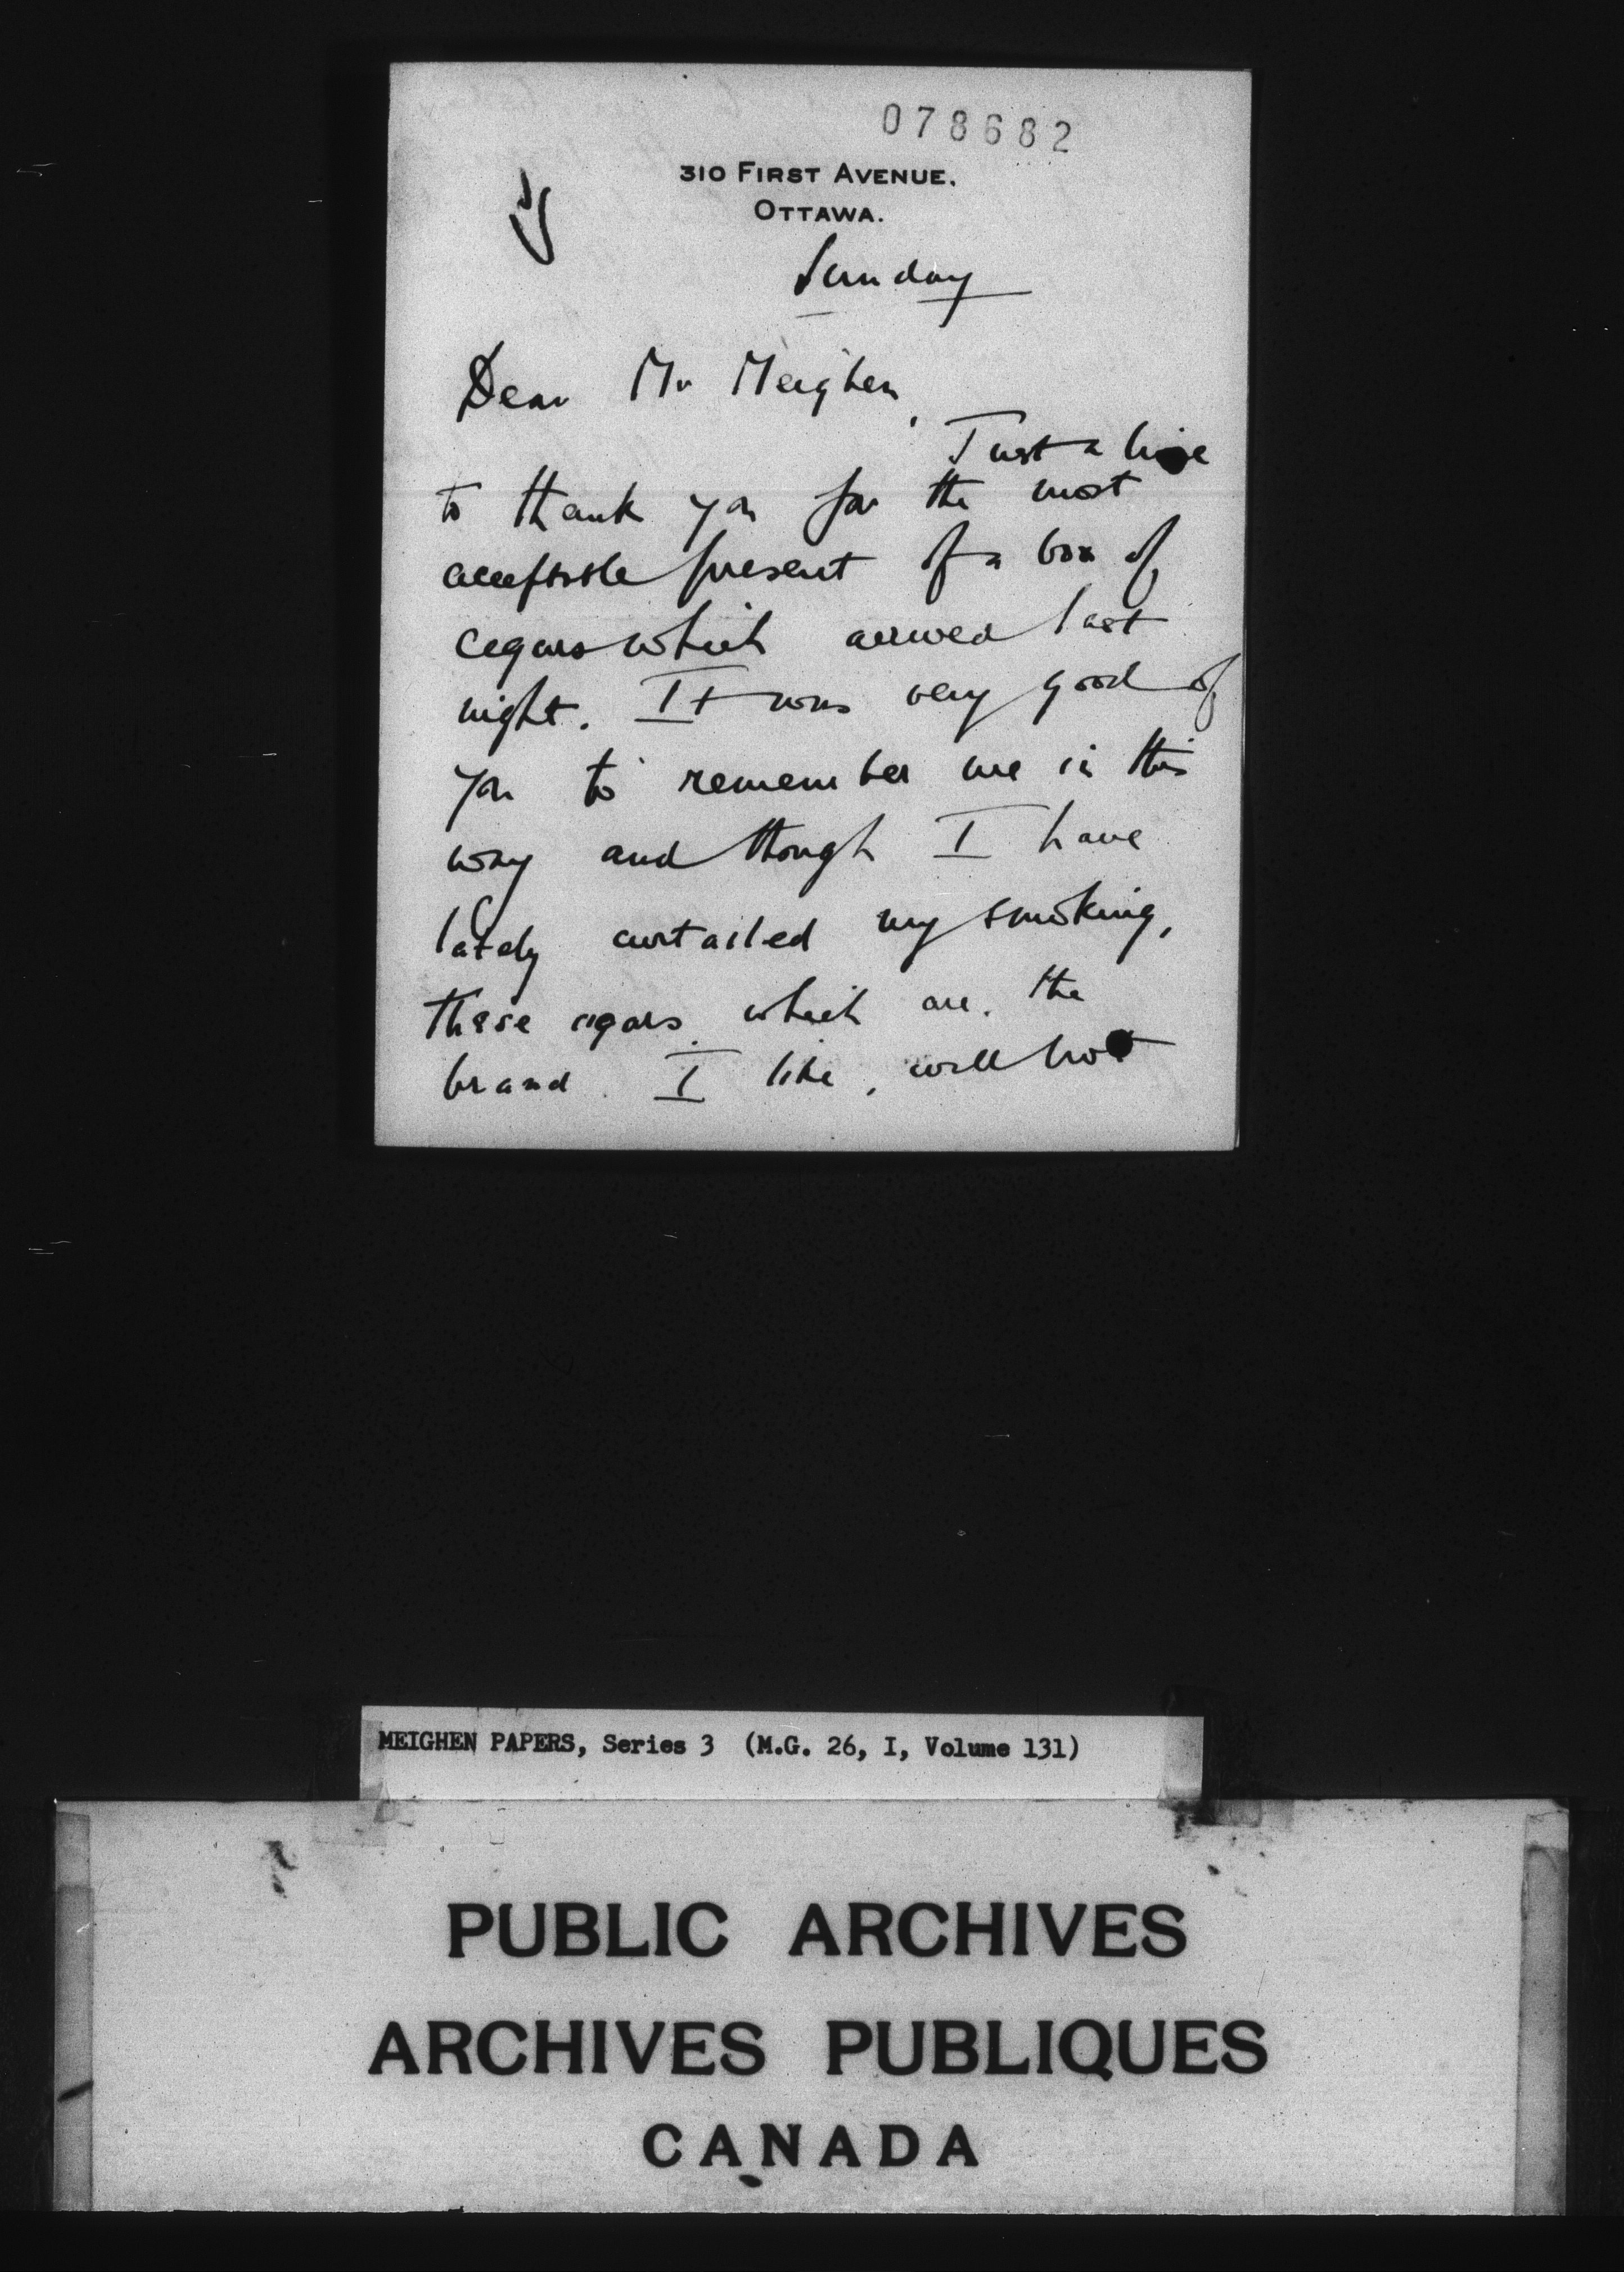 078682
310 FIRST AVENUE.
OTTAWA.
Sunday
Dear Mr Meighen,
Just a line
to thank you for the most
acceptable present of a box of
cigars which arrived last
night. It was very good of
you to remember me in this
way and though I have
lately curtailed my smoking,
these cigars, which are the
brand I like, will not
MEIGHEN PAPERS, Series 3 (M.G. 26, I, Volume 131)
PUBLIC ARCHIVES
ARCHIVES PUBLIQUES
CANADA